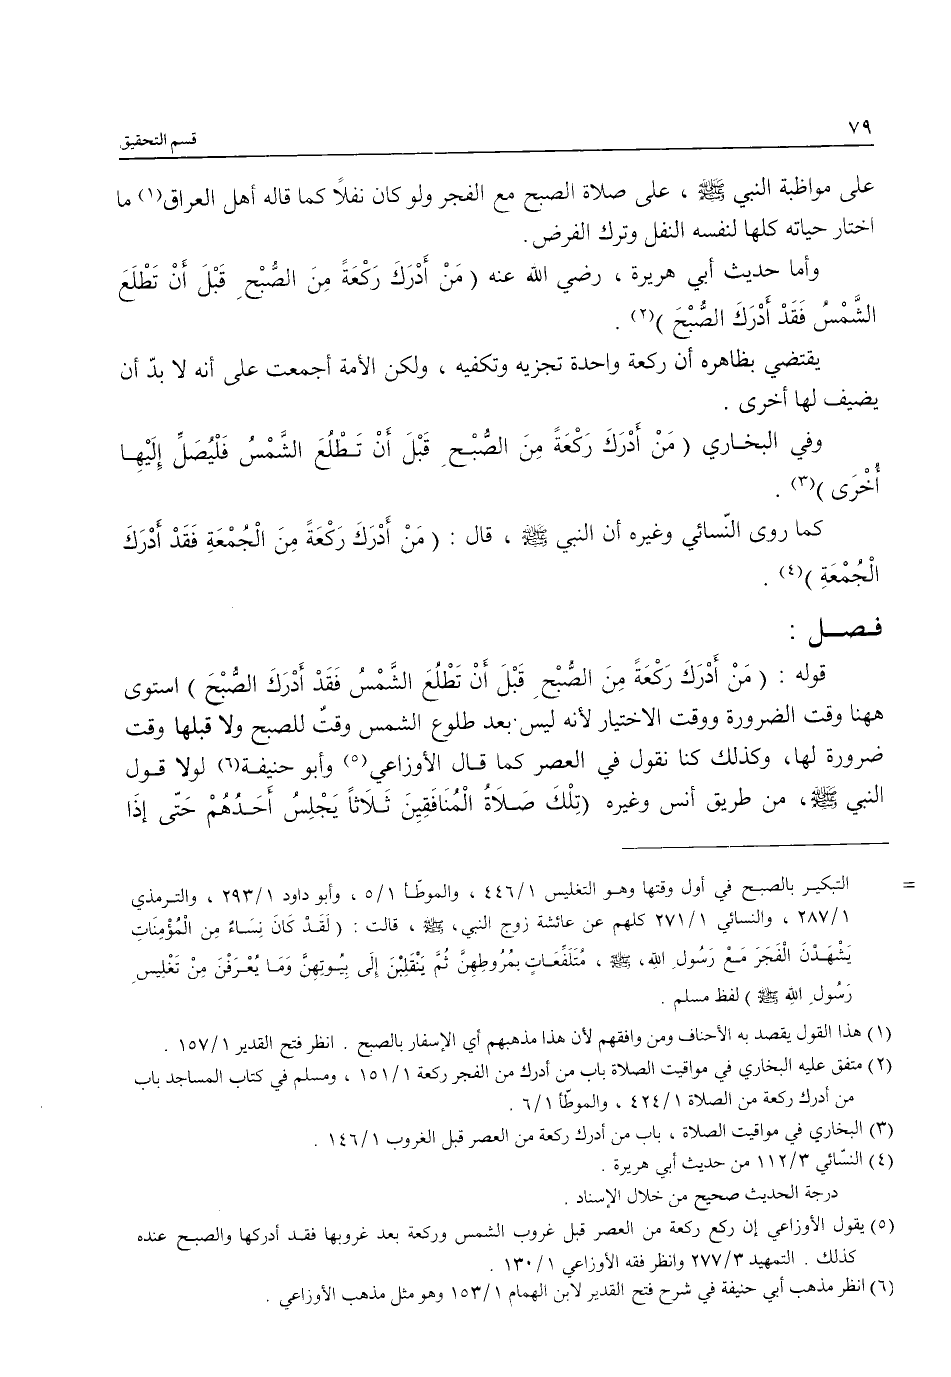 ٧٩
قسم التحقيق
على مواظبة النبي ﷺ ، على صلاة الصبح مع الفجر ولو كان نفلاً كما قاله أهل العراق(١) ما
اختار حياته كلها لنفسه النفل وترك الفرض.
وأما حديث أبي هريرة ، رضي الله عنه ( مَنْ أَدْرَكَ رَكْعَةً مِنَ الصُّبْحِ قَبْلَ أَنْ تَطْلَعَ
الشَّمْسُ فَقَدْ أَدْرَكَ الصُّبْحَ )(٢) .
يقتضي بظاهره أن ركعة واحدة تجزيه وتكفيه ، ولكن الأمة أجمعت على أنه لا بدّ أن
يضيف لها أخرى .
وفي البخاري ( مَنْ أَدْرَكَ رَكْعَةً مِنَ الصُّبْحِ قَبْلَ أَنْ تَطْلُعَ الشَّمْسُ فَلْيُصَلِّ إِلَيْهِا
أُخْرَى )(٣) .
كما روى النّسائي وغيره أن النبي ﷺ ، قال : ( مَنْ أَدْرَكَ رَكْعَةً مِنَ الْجُمْعَةِ فَقَدْ أَدْرَكَ
الْجُمْعَةِ )(٤) .
فصل :
قوله : ( مَنْ أَدْرَكَ رَكْعَةً مِنَ الصُّبْحِ قَبْلَ أَنْ تَطْلُعَ الشَّمْسُ فَقَدْ أَدْرَكَ الصُّبْحَ ) استوى
ههنا وقت الضرورة ووقت الاختيار لأنه ليس بعد طلوع الشمس وقتٌ للصبح ولا قبلها وقت
ضرورة لها، وكذلك كنا نقول في العصر كما قال الأوزاعي(٥) وأبو حنيفة(٦) لولا قول
النبي ﷺ، من طريق أنس وغيره (تِلْكَ صَلَاةُ الْمُنَافِقِينَ ثَلَاثاً يَجْلِسُ أَحَدُهُمْ حَتّى إِذَا
= التبكير بالصبح في أول وقتها وهو التغليس ٤٤٦/١ ، والموطّأ ٥/١ ، وأبو داود ٢٩٣/١ ، والترمذي
٢٨٧/١ ، والنسائي ٢٧١/١ كلهم عن عائشة زوج النبي، ﷺ ، قالت : ( لَقَدْ كَانَ نِسَاءٌ مِنَ الْمُؤْمِنَاتِ
يَشْهَدْنَ الْفَجَرَ مَعْ رَسُولِ الله، ﷺ ، مُتَلَفِّعَاتٍ بِمُرُوطِهِنَّ ثُمَّ يَنْقَلِبْنَ إِلَى بِيُوتِهِنَّ وَمَا يُعْرَفْنَ مِنْ تَغْلِيسِ
رَسُولِ اللهِ ﷺ ) لفظ مسلم .
(١) هذا القول يقصد به الأحناف ومن وافقهم لأن هذا مذهبهم أي الإسفار بالصبح . انظر فتح القدير ١٥٧/١ .
(٢) متفق عليه البخاري في مواقيت الصلاة باب من أدرك من الفجر ركعة ١٥١/١ ، ومسلم في كتاب المساجد باب
من أدرك ركعة من الصلاة ٤٢٤/١ ، والموطّأ ٦/١ .
(٣) البخاري في مواقيت الصلاة ، باب من أدرك ركعة من العصر قبل الغروب ١٤٦/١ .
(٤) النسّائي ١١٢/٣ من حديث أبي هريرة .
درجة الحديث صحيح من خلال الإسناد .
(٥) يقول الأوزاعي إن ركع ركعة من العصر قبل غروب الشمس وركعة بعد غروبها فقد أدركها والصبح عنده
كذلك . التمهيد ٢٧٧/٣ وانظر فقه الأوزاعي ١٣٠/١ .
(٦) انظر مذهب أبي حنيفة في شرح فتح القدير لابن الهمام ١٥٣/١ وهو مثل مذهب الأوزاعي .